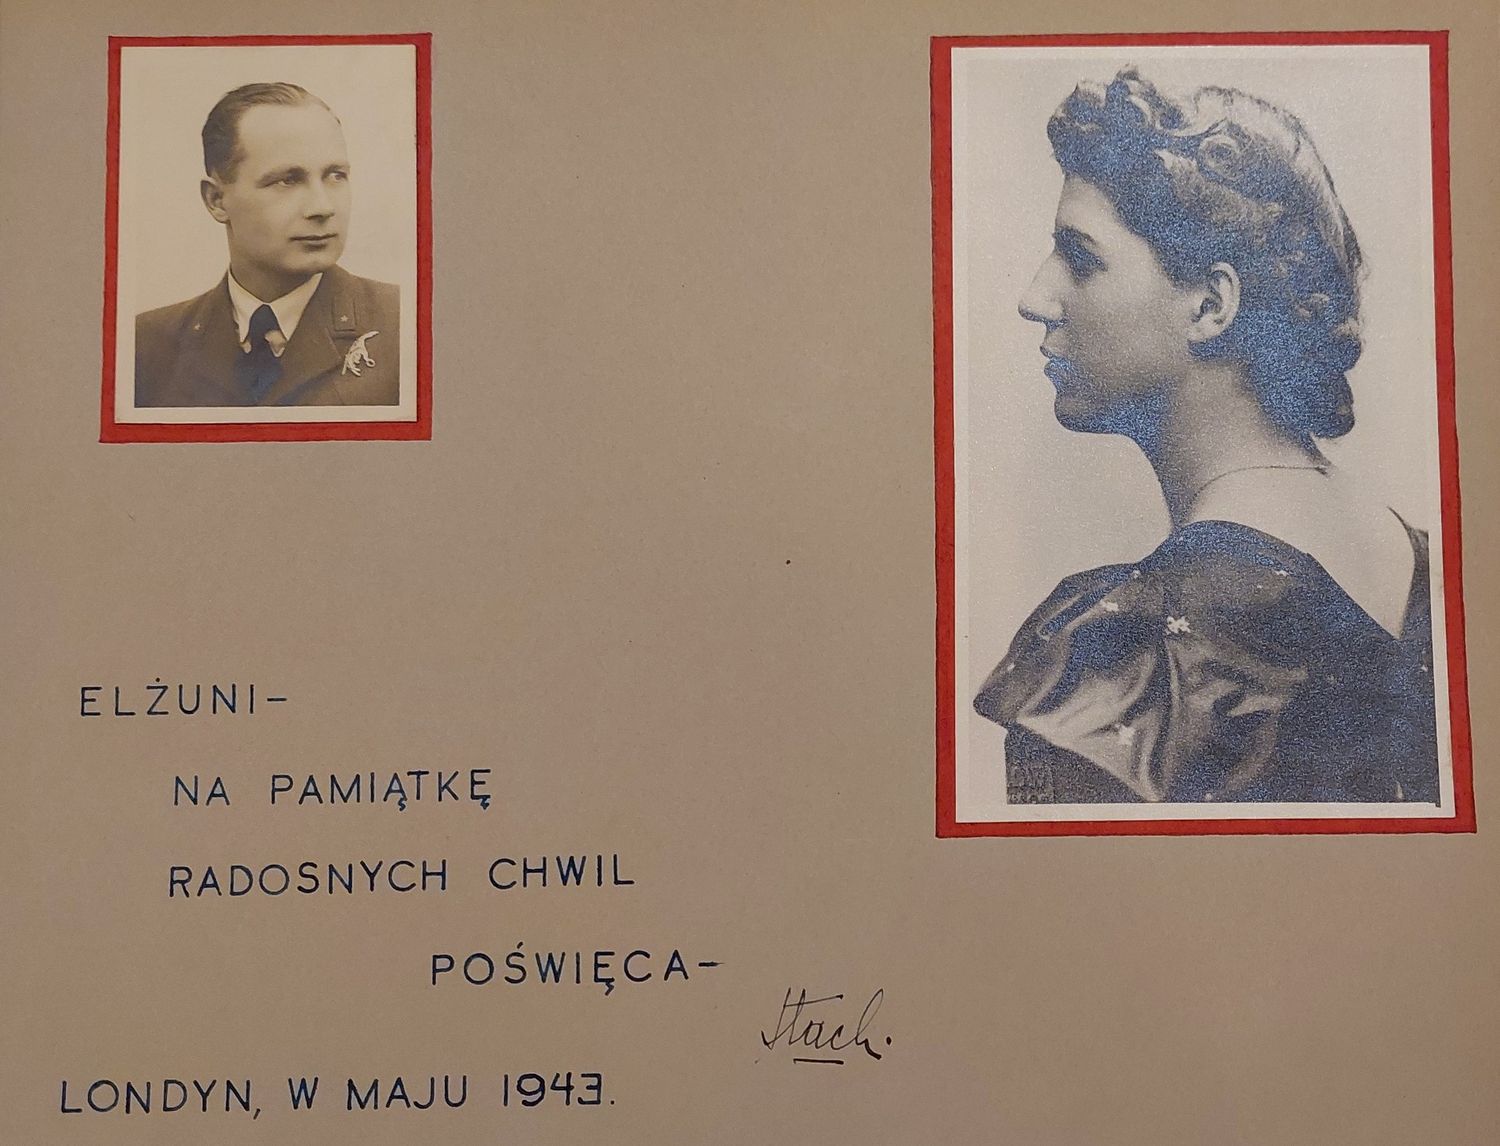 ELŻUNI-
NA PAMIĄTKĘ
RADOSNYCH CHWIL
POŚWIĘCA-
Stach.
LONDYN, W MAJU 1943.